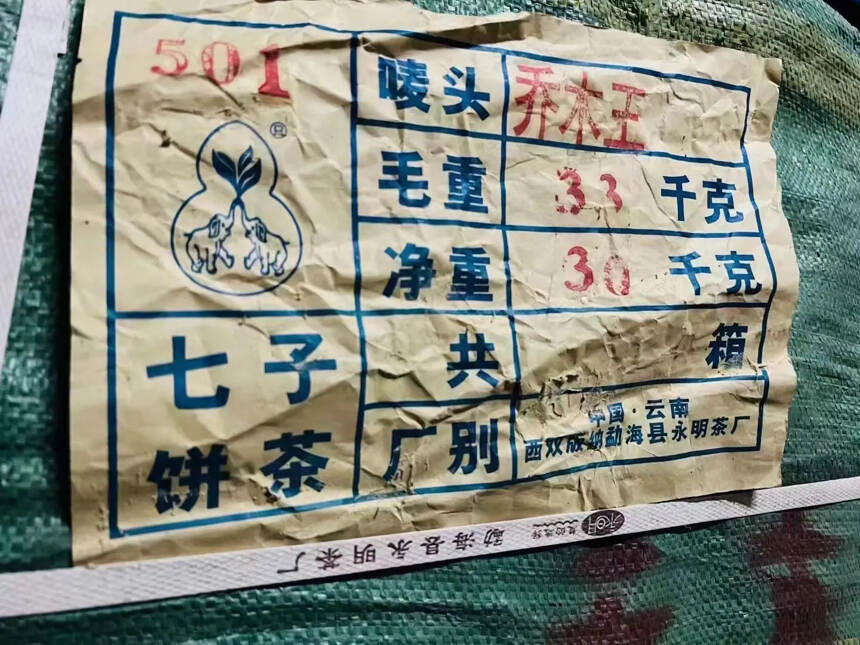 501
®
唛头 乔木王
毛重 33 千克
净重 30 千克
七子
饼茶
共 箱
厂别
中国·云南
西双版纳勐海县永明茶厂
勐海县永明茶厂